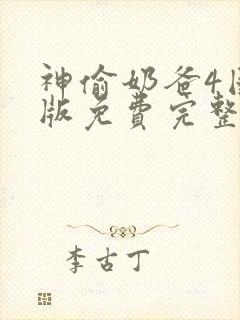 神偷奶爸4国
版免费完整
李古丁